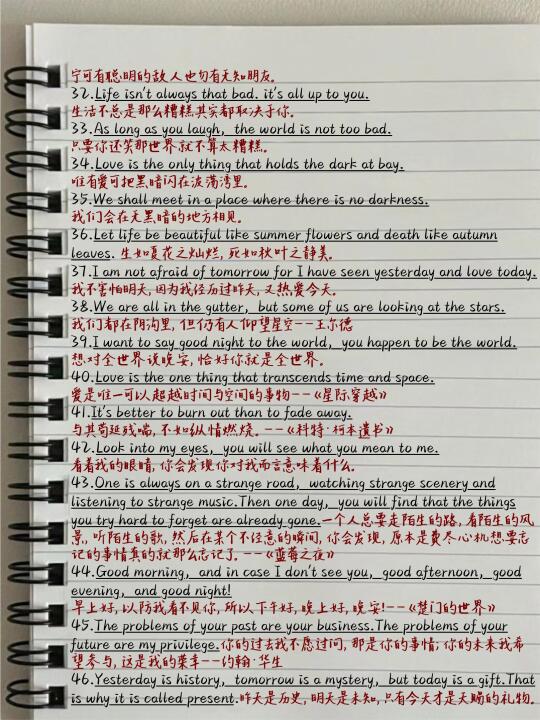 宁可有聪明的敌人也勿有无知朋友。
32.Life isn't always that bad. it's all up to you.
生活不总是那么糟糕其实都取决于你。
33.As long as you laugh, the world is not too bad.
只要你还笑那世界就不算太糟糕。
34.Love is the only thing that holds the dark at bay.
唯有爱可把黑暗闪在波荡湾里。
35.We shall meet in a place where there is no darkness.
我们会在无黑暗的地方相见。
36.Let life be beautiful like summer flowers and death like autumn
leaves. 生如夏花之灿烂, 死如秋叶之静美。
37.I am not afraid of tomorrow for I have seen yesterday and love today.
我不害怕明天, 因为我经历过昨天, 又热爱今天。
38.We are all in the gutter, but some of us are looking at the stars.
我们都在阴沟里, 但仍有人仰望星空--王尔德
39.I want to say good night to the world, you happen to be the world.
想对全世界说晚安, 恰好你就是全世界。
40.Love is the one thing that transcends time and space.
爱是唯一可以超越时间与空间的事物--《星际穿越》
41.It's better to burn out than to fade away.
与其苟延残喘, 不如纵情燃烧。--《科特·柯本遗书》
42.Look into my eyes, you will see what you mean to me.
看着我的眼睛, 你会发现你对我而言意味着什么。
43.One is always on a strange road, watching strange scenery and
listening to strange music.Then one day, you will find that the things
you try hard to forget are already gone.一个人总要走陌生的路, 看陌生的风
景, 听陌生的歌, 然后在某个不经意的瞬间, 你会发现, 原本是费尽心机想要忘
记的事情真的就那么忘记了, --《蓝莓之夜》
44.Good morning, and in case I don't see you, good afternoon, good
evening, and good night!
早上好, 以防我看不见你, 所以下午好, 晚上好, 晚安!--《楚门的世界》
45.The problems of your past are your business.The problems of your
future are my privilege.你的过去我不愿过问, 那是你的事情; 你的未来我希
望参与, 这是我的荣幸--约翰·华生
46.Yesterday is history, tomorrow is a mystery, but today is a gift.That
is why it is called present.昨天是历史, 明天是未知, 只有今天才是天赐的礼物.